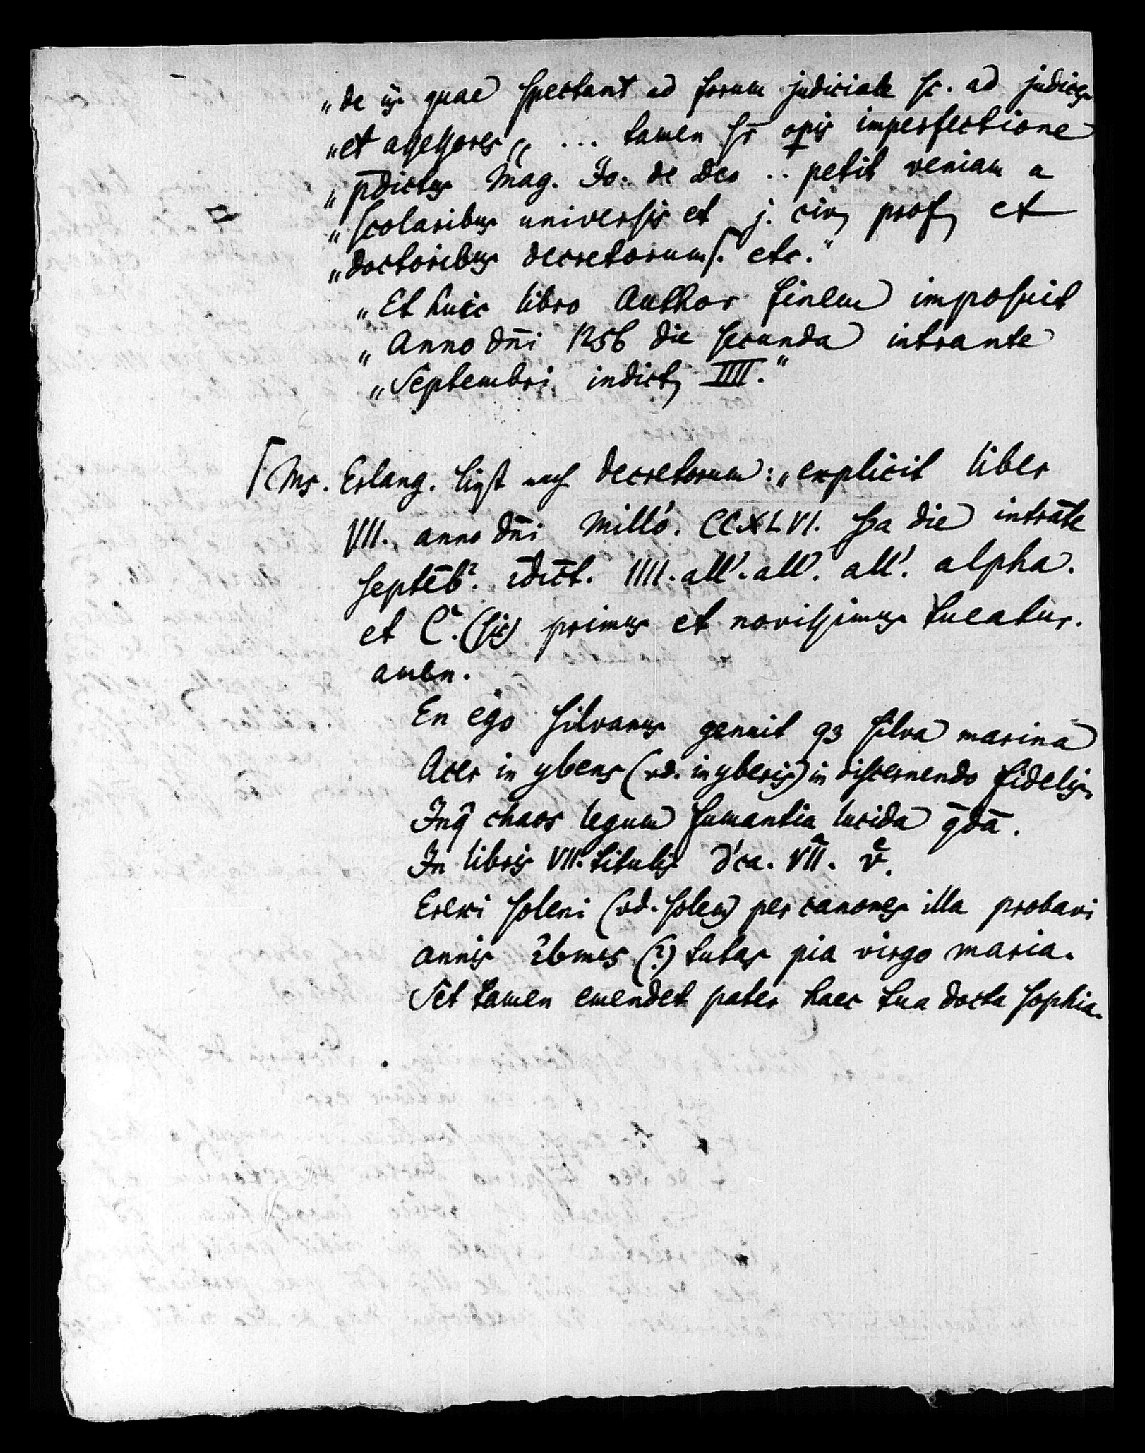 „de iis quae spectant ad forum judiciale sc. ad judices
„et assessores „ ... tamen sr opis imperfectione
„pdictus Mag. Jo. de deo .. petit veniam a
„scolaribus universis et j. civ prof et
„doctoribus decretorum etc."
„Et huic libro Author finem imposuit
„Anno dni 1256 die secunda intrante
„Septembri indict IIII."
Ms. Erlang. liest nach decretorum: „explicit liber
VII. anno dni Millo. CCXLVI. scda die intrāte
septēb. idict. IIII. all'. all'. all'. alpha.
et C. (sic) primus et novissimus tueatur.
amen.
En ego silvanus genuit q3 silva marina
Acer in ybens (vd. in yberis) in discernendo fidelis.
Inq chaos legum fumantia lucida qda.
In libris VII. titulis d'ca. VII. v.
Erexi soleni (vd. solem) per canones illa probavi
annis (?) tutas pia virgo maria.
Set tamen emendet pater haec tua docta sophia.